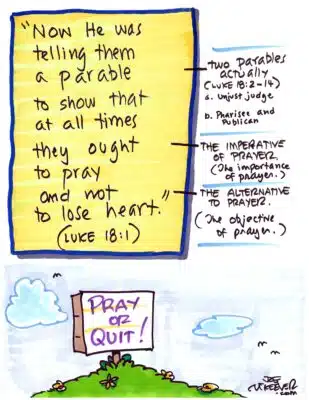 "Now He was
telling them
a parable
to show that
at all times
they ought
to pray
and not
to lose heart."
(LUKE 18:1)
TWO PARABLES
ACTUALLY
(LUKE 18:2-14)
a. Unjust judge
b. Pharisee and
Publican
THE IMPERATIVE
OF PRAYER
(The importance
of prayer.)
THE ALTERNATIVE
TO PRAYER.
(The objective
of prayer.)
PRAY
OR
QUIT!
JOE
MCKEEVER
.com